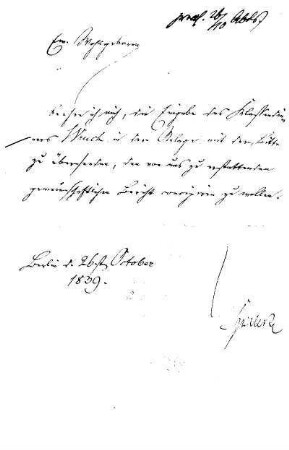 praes. 26/10
Ew. Wohlgeboren
beehre ich mich, die Eingabe des
in der Anlage mit der Bitte
zu übersenden, den von uns zu erstattenden
gemeinschaftlichen Bericht zu wollen.
Berlin d. 26sten October
1839.